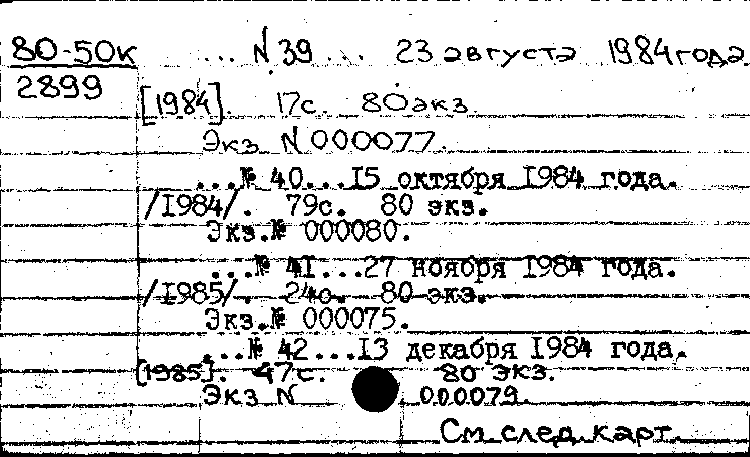 80-50к ... N 39 ... 23 августа 1984 года.
2899
[1984]. 17с. 80 экз.
Экз N 000077.
...№ 40...15 октября 1984 года.
/1984/. 79с. 80 экз.
Экз.№ 000080.
...№ 41...27 ноября 1984 года.
/1985/. 24с. 80 экз.
Экз.№ 000075.
...№ 42...13 декабря 1984 года.
[1985]. 47с. 80 экз.
Экз N 000079.
См. след. карт.